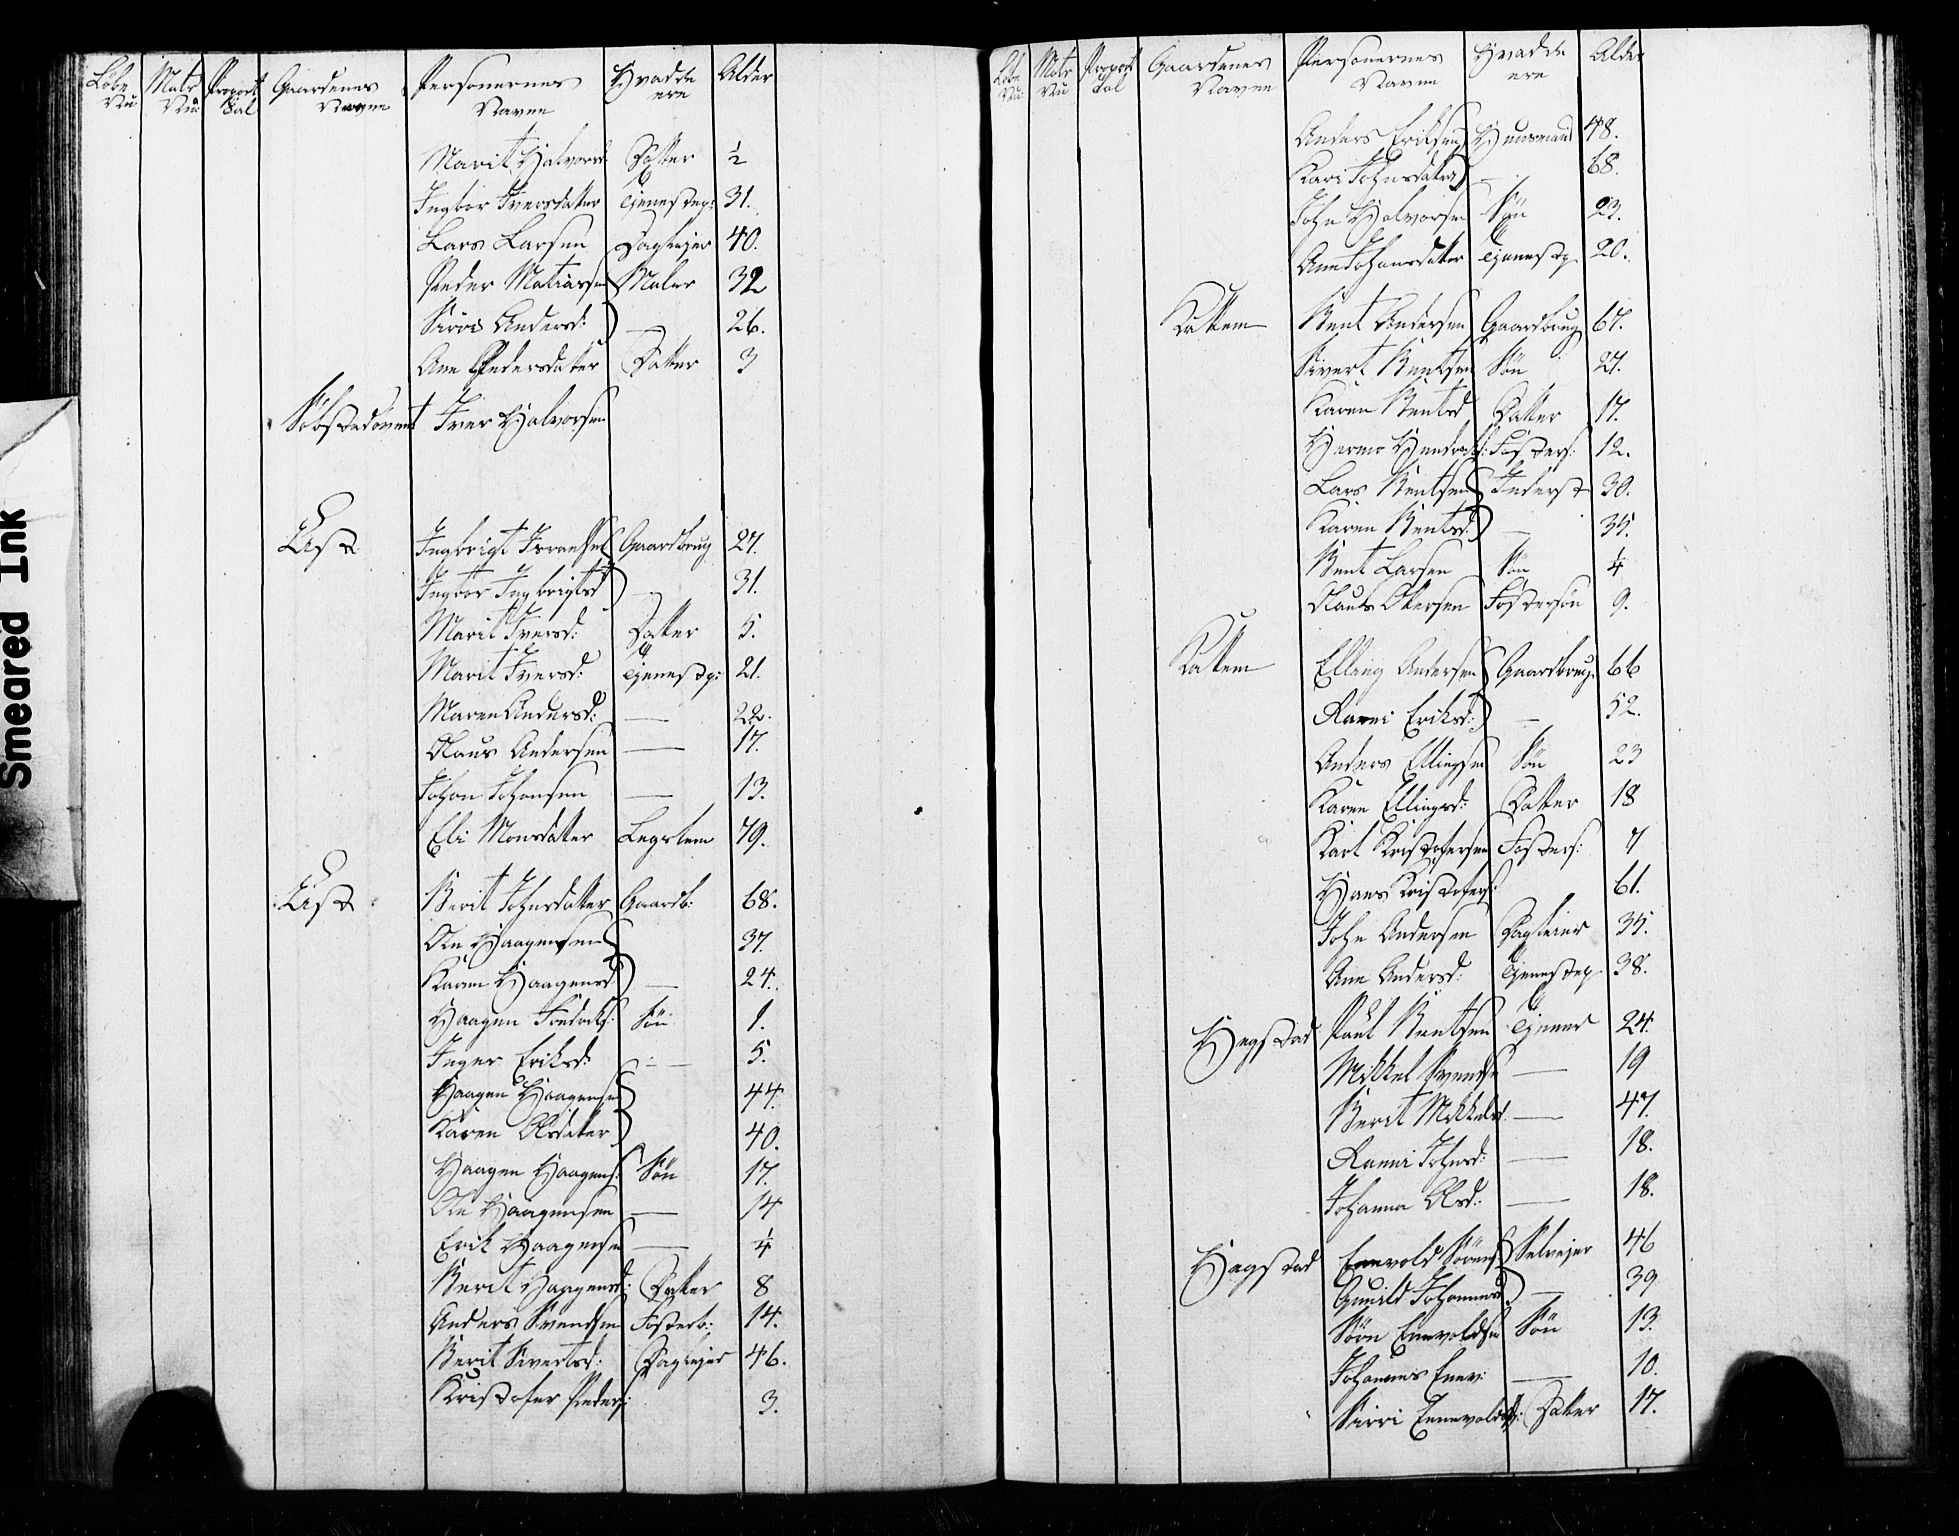 Løbe Nu: Matr Nu: Proport Tal Gaardenes Navne Personernes Navne Hvad de ere Alder
Marit Halvorsd: Datter ½
Ingbor Iversdatter Tjenestep: 31.
Lars Larsen Daglejer 40.
Peder Matiasen Maler 32
Sirri Andersd: — 26.
Ane Pedersdatter Datter 3
Iver Halvorsen
List Ingbrigt Gaardbrug 27.
Ingbor Ingbrigtsd — 31.
Marit Iversd: Datter 5.
Marit Iversd: Tjenestep: 21.
Maren Andersd: — 22.
Olaus Andersen — 17.
Johan Johansen — 13.
Eli Monsdatter Legslem 79.
List Berit Johnsdatter Gaardb: 68.
Ole Haagensen 37.
Karen Haagensd — 24.
Haagen Søn 1.
Inger Eriksd: — 5.
Haagen Haagensen 44.
Karen Olsdatter 40.
Haagen Haagens: Søn 17.
Ole Haagensen — 14
Erik Haagensen — ¼
Berit Haagensd: Datter 8
Anders Svendsen Fosterb: 14.
Berit Sivertsd: Daglejer 46.
Kristofer Peders: 3.
Løbe Nu: Matr Nu Proport Tal Gaardenes Navne Personernes Navne Hvad de ere Alder
Anders Eriksen Huusmand 48.
Kari Johnsdatter — 68.
John Halvorsen Søn 23.
Ane Johansdatter Tjenestp. 20.
Kattem Bent Andersen Gaardbrug 67.
Sivert Bentsen Søn 27.
Karen Bentsd Datter 17.
Fosters: 12.
Lars Bentsen Inderst 30.
Karen Bentsd: — 35.
Bent Larsen Søn ¼
Olaus Olersen Fostersøn 9.
Kattem Elling Andersen Gaardbrug. 66
Ranni Eriksd: — 52.
Anders Ellingsen Søn 23
Karen Ellingsd: Datter 18
Karl Kristofersen Fosters: 7
Hans Kristofers: 61.
John Andersen Dagleier 35.
Ane Andersd: Tjenestep 38.
Hegstad Paul Bentsen Tjener 24.
Mikkel Svends — 19
Berit Mikkelsd — 47.
Ranni Johnsd: — 18.
Johanna Olsd: — 18.
Hegstad Ennvold Sørens Selvejer 46
Gunild Johannesd — 39
Sørn Ennvoldsen Søn 13.
Johannes Ennv: — 10.
Sirri Ennevoldsd: Datter 17.
Smeared Ink